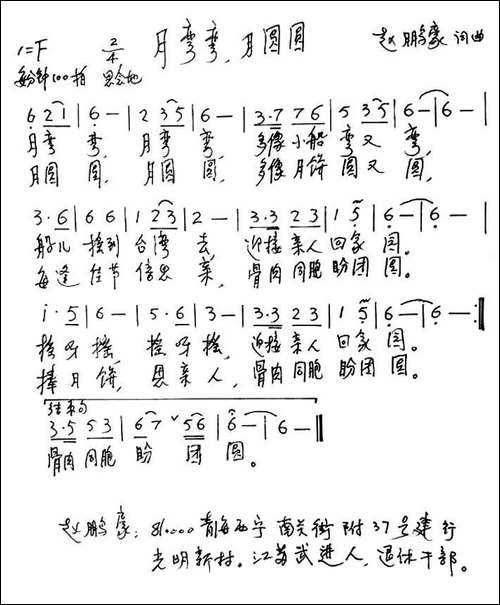 1=F 2/4 月弯弯，月圆圆 赵鹏豪 词曲
每分钟100拍 思念地
6 2 1 | 6 - | 2 3 5 | 6 - | 3·7 7 6 | 5 3 5 | 6 - | 6 - |
月弯 弯， 月弯 弯， 多像小船 弯又 弯，
月圆 圆， 月圆 圆， 多像月饼 圆又 圆，
3·6 | 6 6 | 1 2 3 | 2 - | 3·3 2 3 | 1 5 | 6 - | 6 - |
船儿 摇到 台湾 去， 迎接亲人 回家 园。
每逢 佳节 倍思 亲， 骨肉同胞 盼团 圆。
i·5 | 6 - | 5·6 | 3 - | 3·3 2 3 | 1 5 | 6 - | 6 - :‖
摇呀 摇， 摇呀 摇， 迎接亲人 回家 园。
捧月 饼， 思亲 人， 骨肉同胞 盼团 圆。
结束句
3·5 5 3 | 6 7 ˅ 5 6 | 6 - | 6 - ‖
骨肉同胞 盼 团 圆。
赵鹏豪：810000 青海西宁 南关街 附37号建行
光明新村。江苏武进人，退休干部。